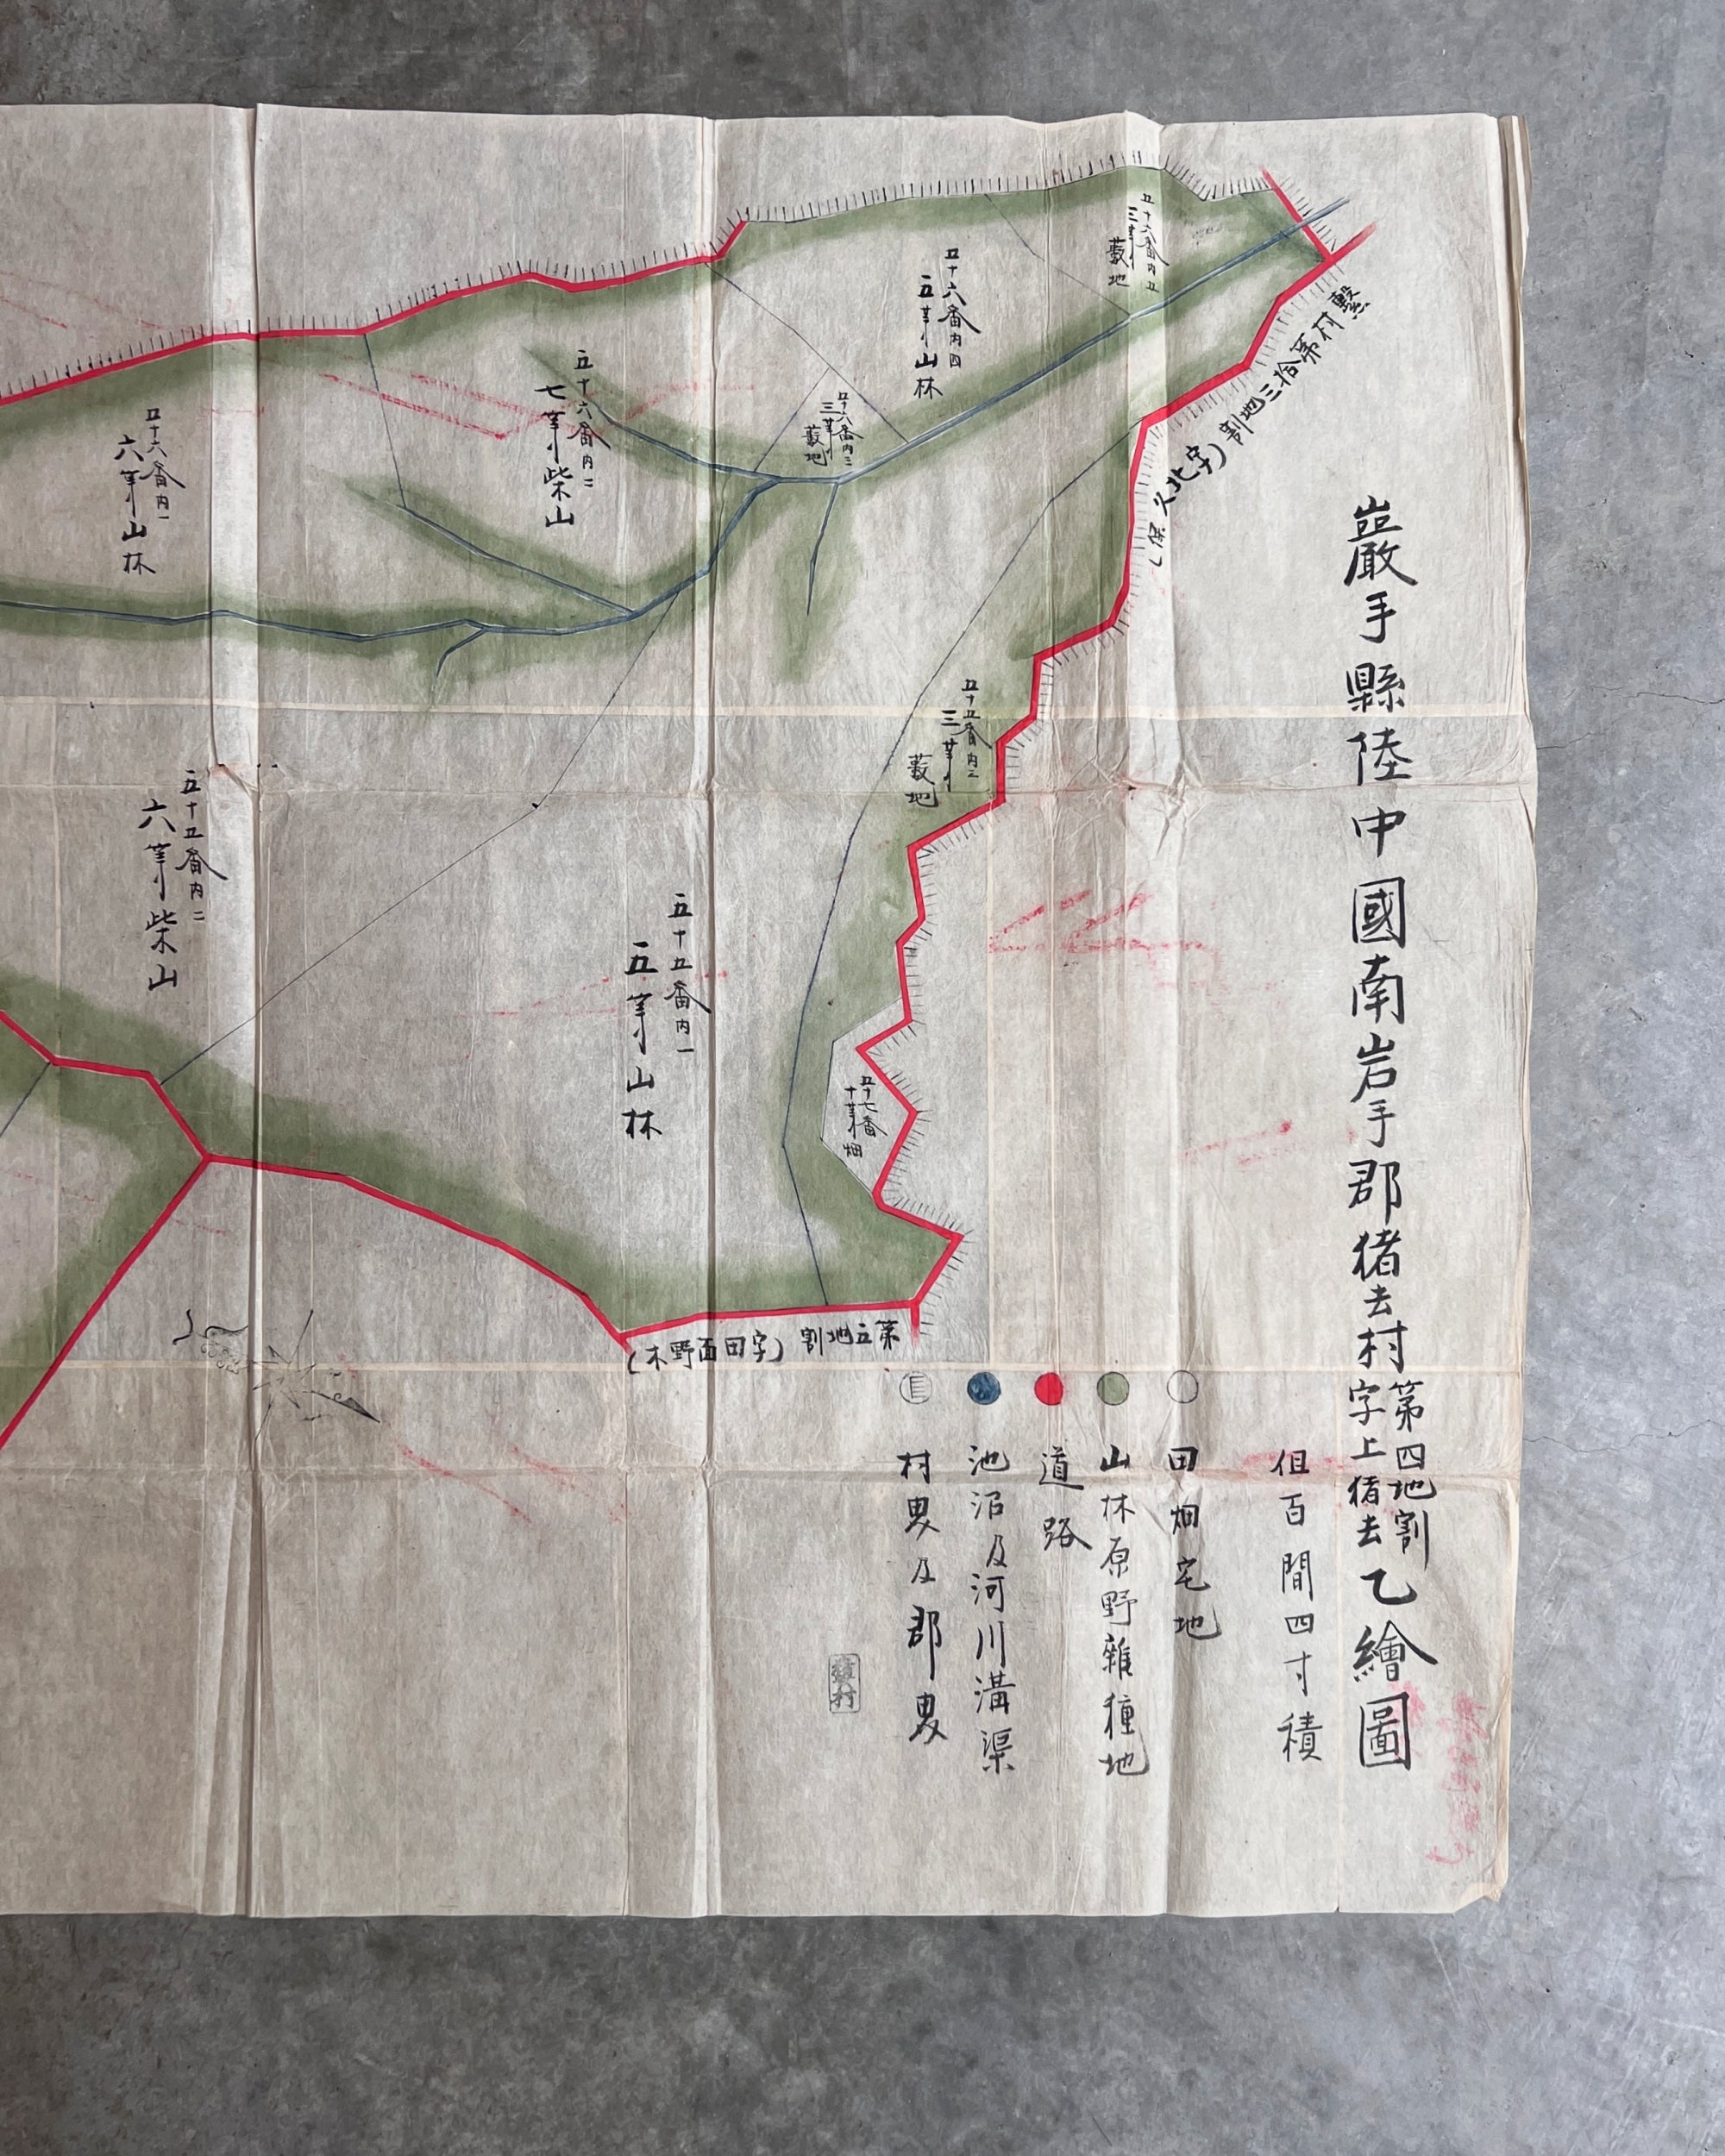 巖手縣陸中國南岩手郡猪去村
第四地割
字上猪去
乙繪圖
但百間四寸積
田畑宅地
山林原野雜種地
道路
池沼及河川溝渠
村界及郡界
繋村第拾三地割(字北久保)
五十六番内五
三等
藪地
五十六番内四
五等山林
五十六番内三
三等
藪地
五十六番内二
七等柴山
五十六番内一
六等山林
五十五番内三
三等
藪地
五十五番内一
五等山林
五十五番内二
六等柴山
五十七番
十等畑
第五地割(字田面野木)